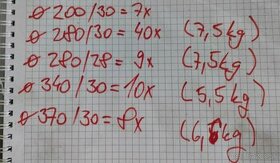 ⌀ 200/30 = 7x
⌀ 280/30 = 40x (7,5kg)
⌀ 280/28 = 9x (7,5kg)
⌀ 340/30 = 10x (5,5kg)
⌀ 370/30 = 8x (6,6kg)